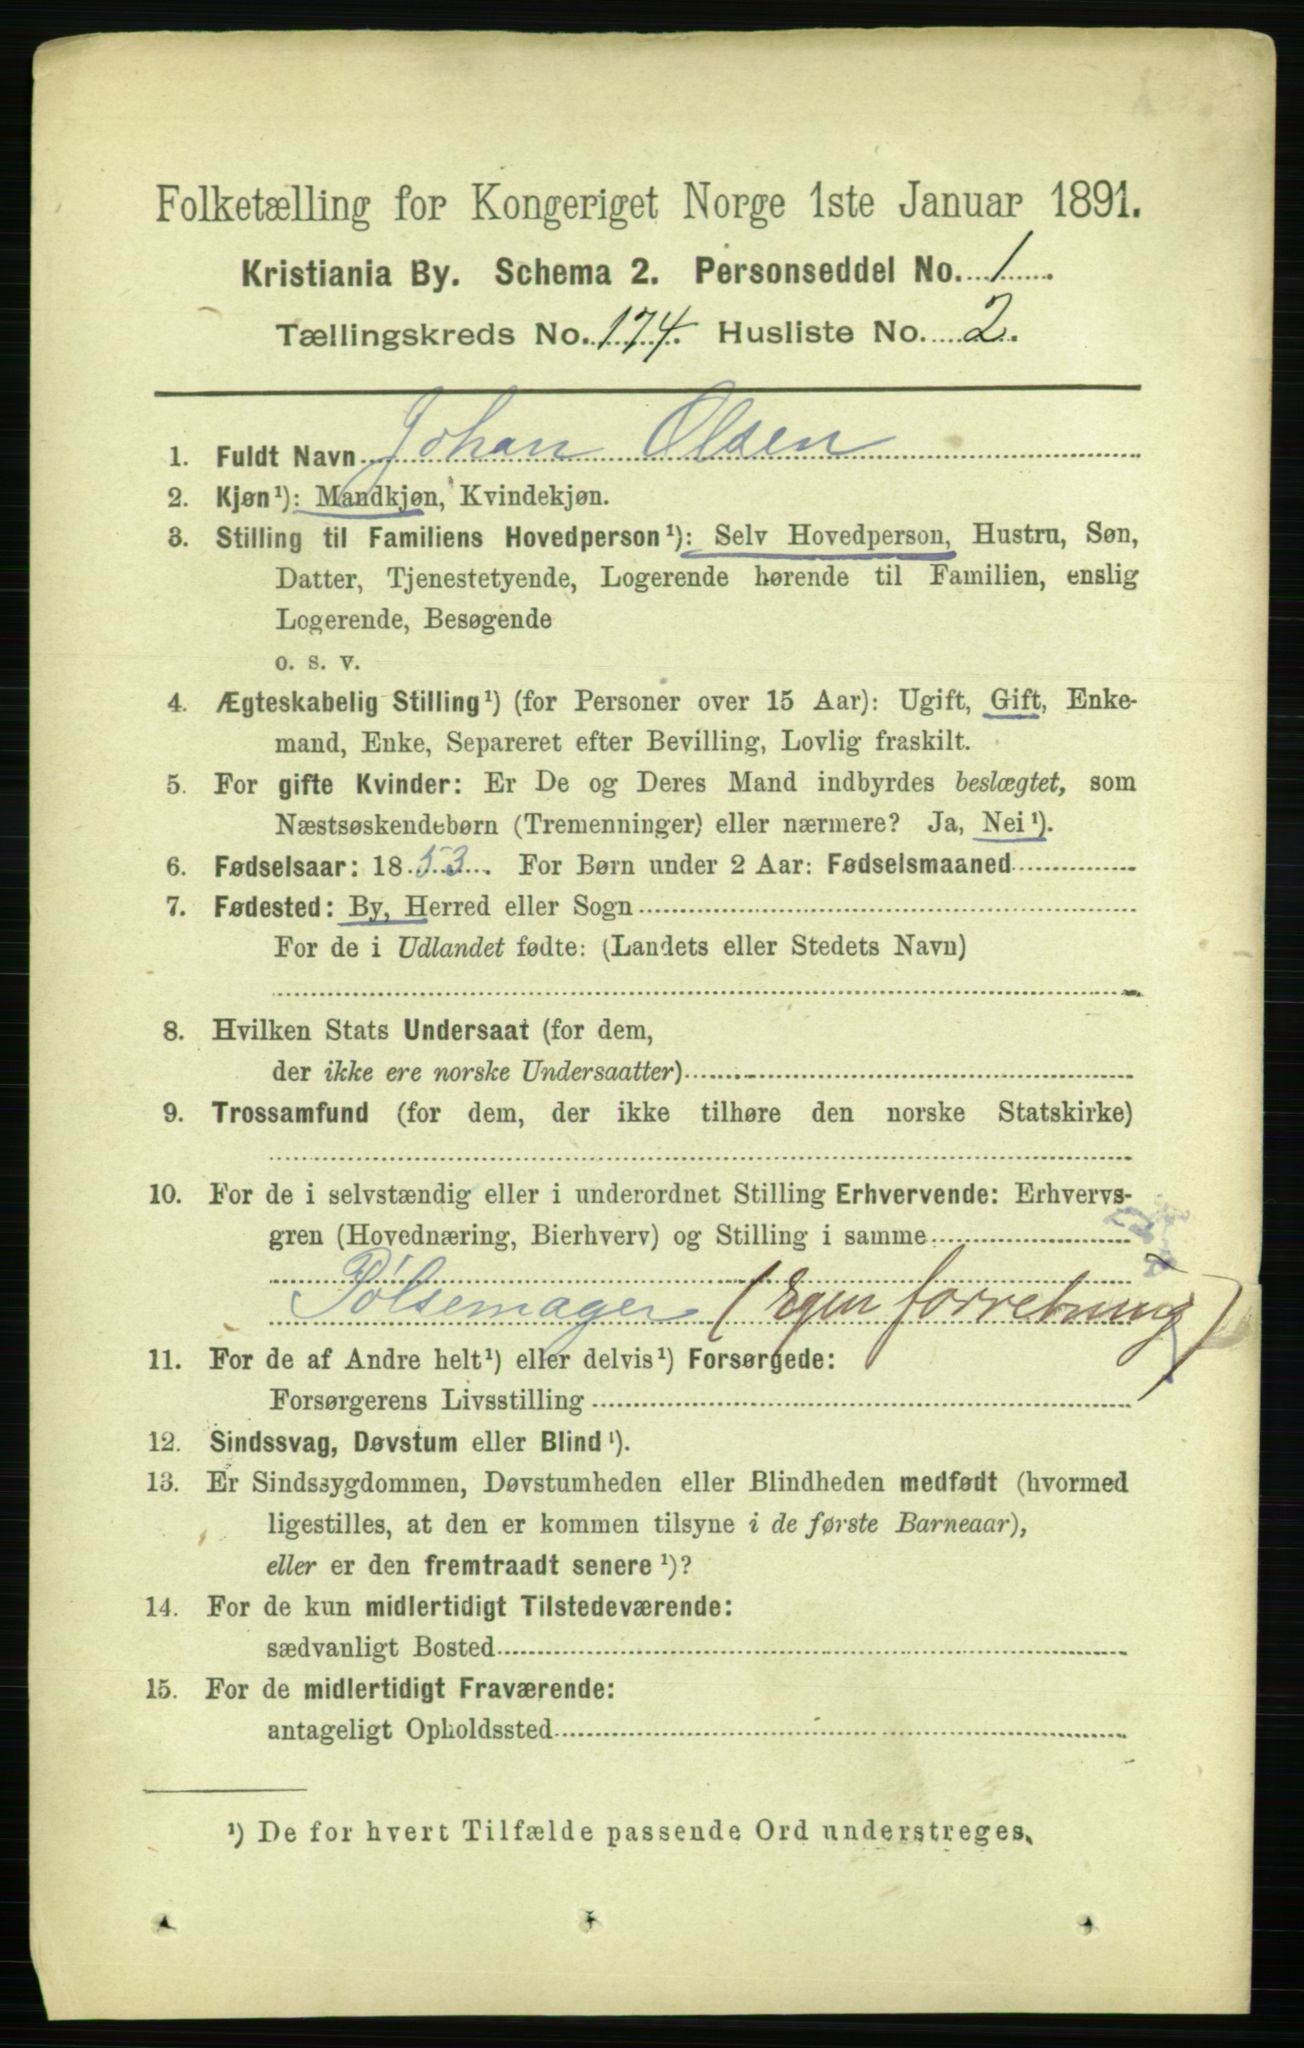 Folketælling for Kongeriget Norge 1ste Januar 1891.
Kristiania By. Schema 2. Personseddel No. 1
Tællingskreds No. 174. Husliste No. 2.
1. Fuldt Navn Johan Olsen
2. Kjøn¹): Mandkjøn, Kvindekjøn.
3. Stilling til Familiens Hovedperson¹): Selv Hovedperson, Hustru, Søn,
Datter, Tjenestetyende, Logerende hørende til Familien, enslig
Logerende, Besøgende
o. s. v.
4. Ægteskabelig Stilling¹) (for Personer over 15 Aar): Ugift, Gift, Enke-
mand, Enke, Separeret efter Bevilling, Lovlig fraskilt.
5. For gifte Kvinder: Er De og Deres Mand indbyrdes beslægtet, som
Næstsøskendebørn (Tremenninger) eller nærmere? Ja, Nei¹).
6. Fødselsaar: 1853. For Børn under 2 Aar: Fødselsmaaned
7. Fødested: By, Herred eller Sogn
For de i Udlandet fødte: (Landets eller Stedets Navn)
8. Hvilken Stats Undersaat (for dem,
der ikke ere norske Undersaatter)
9. Trossamfund (for dem, der ikke tilhøre den norske Statskirke)
10. For de i selvstændig eller i underordnet Stilling Erhvervende: Erhvervs-
gren (Hovednæring, Bierhverv) og Stilling i samme
Pølsemager (Egen forretning)
11. For de af Andre helt¹) eller delvis¹) Forsørgede:
Forsørgerens Livsstilling
12. Sindssvag, Døvstum eller Blind¹).
13. Er Sindssygdommen, Døvstumheden eller Blindheden medfødt (hvormed
ligestilles, at den er kommen tilsyne i de første Barneaar),
eller er den fremtraadt senere¹)?
14. For de kun midlertidigt Tilstedeværende:
sædvanligt Bosted
15. For de midlertidigt Fraværende:
antageligt Opholdssted
¹) De for hvert Tilfælde passende Ord understreges.